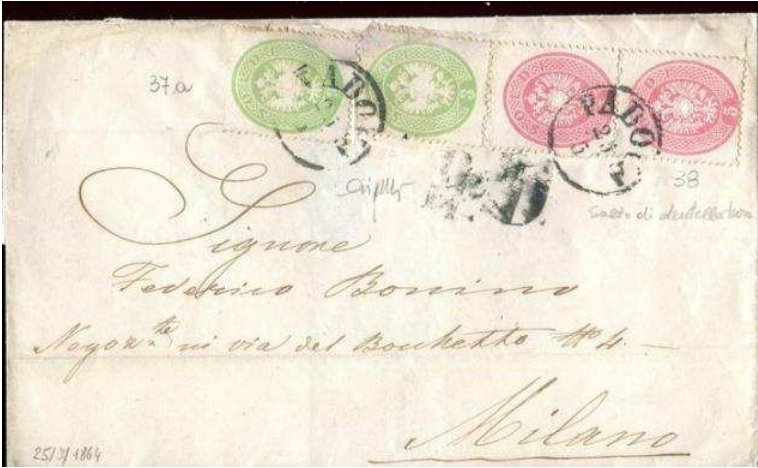 37a
PADOVA
PADOVA
38
Salto di dentellatura
Signore
Federico Bonino
Negoz.te in via del Bochetto No 4
Milano
25/3/1864